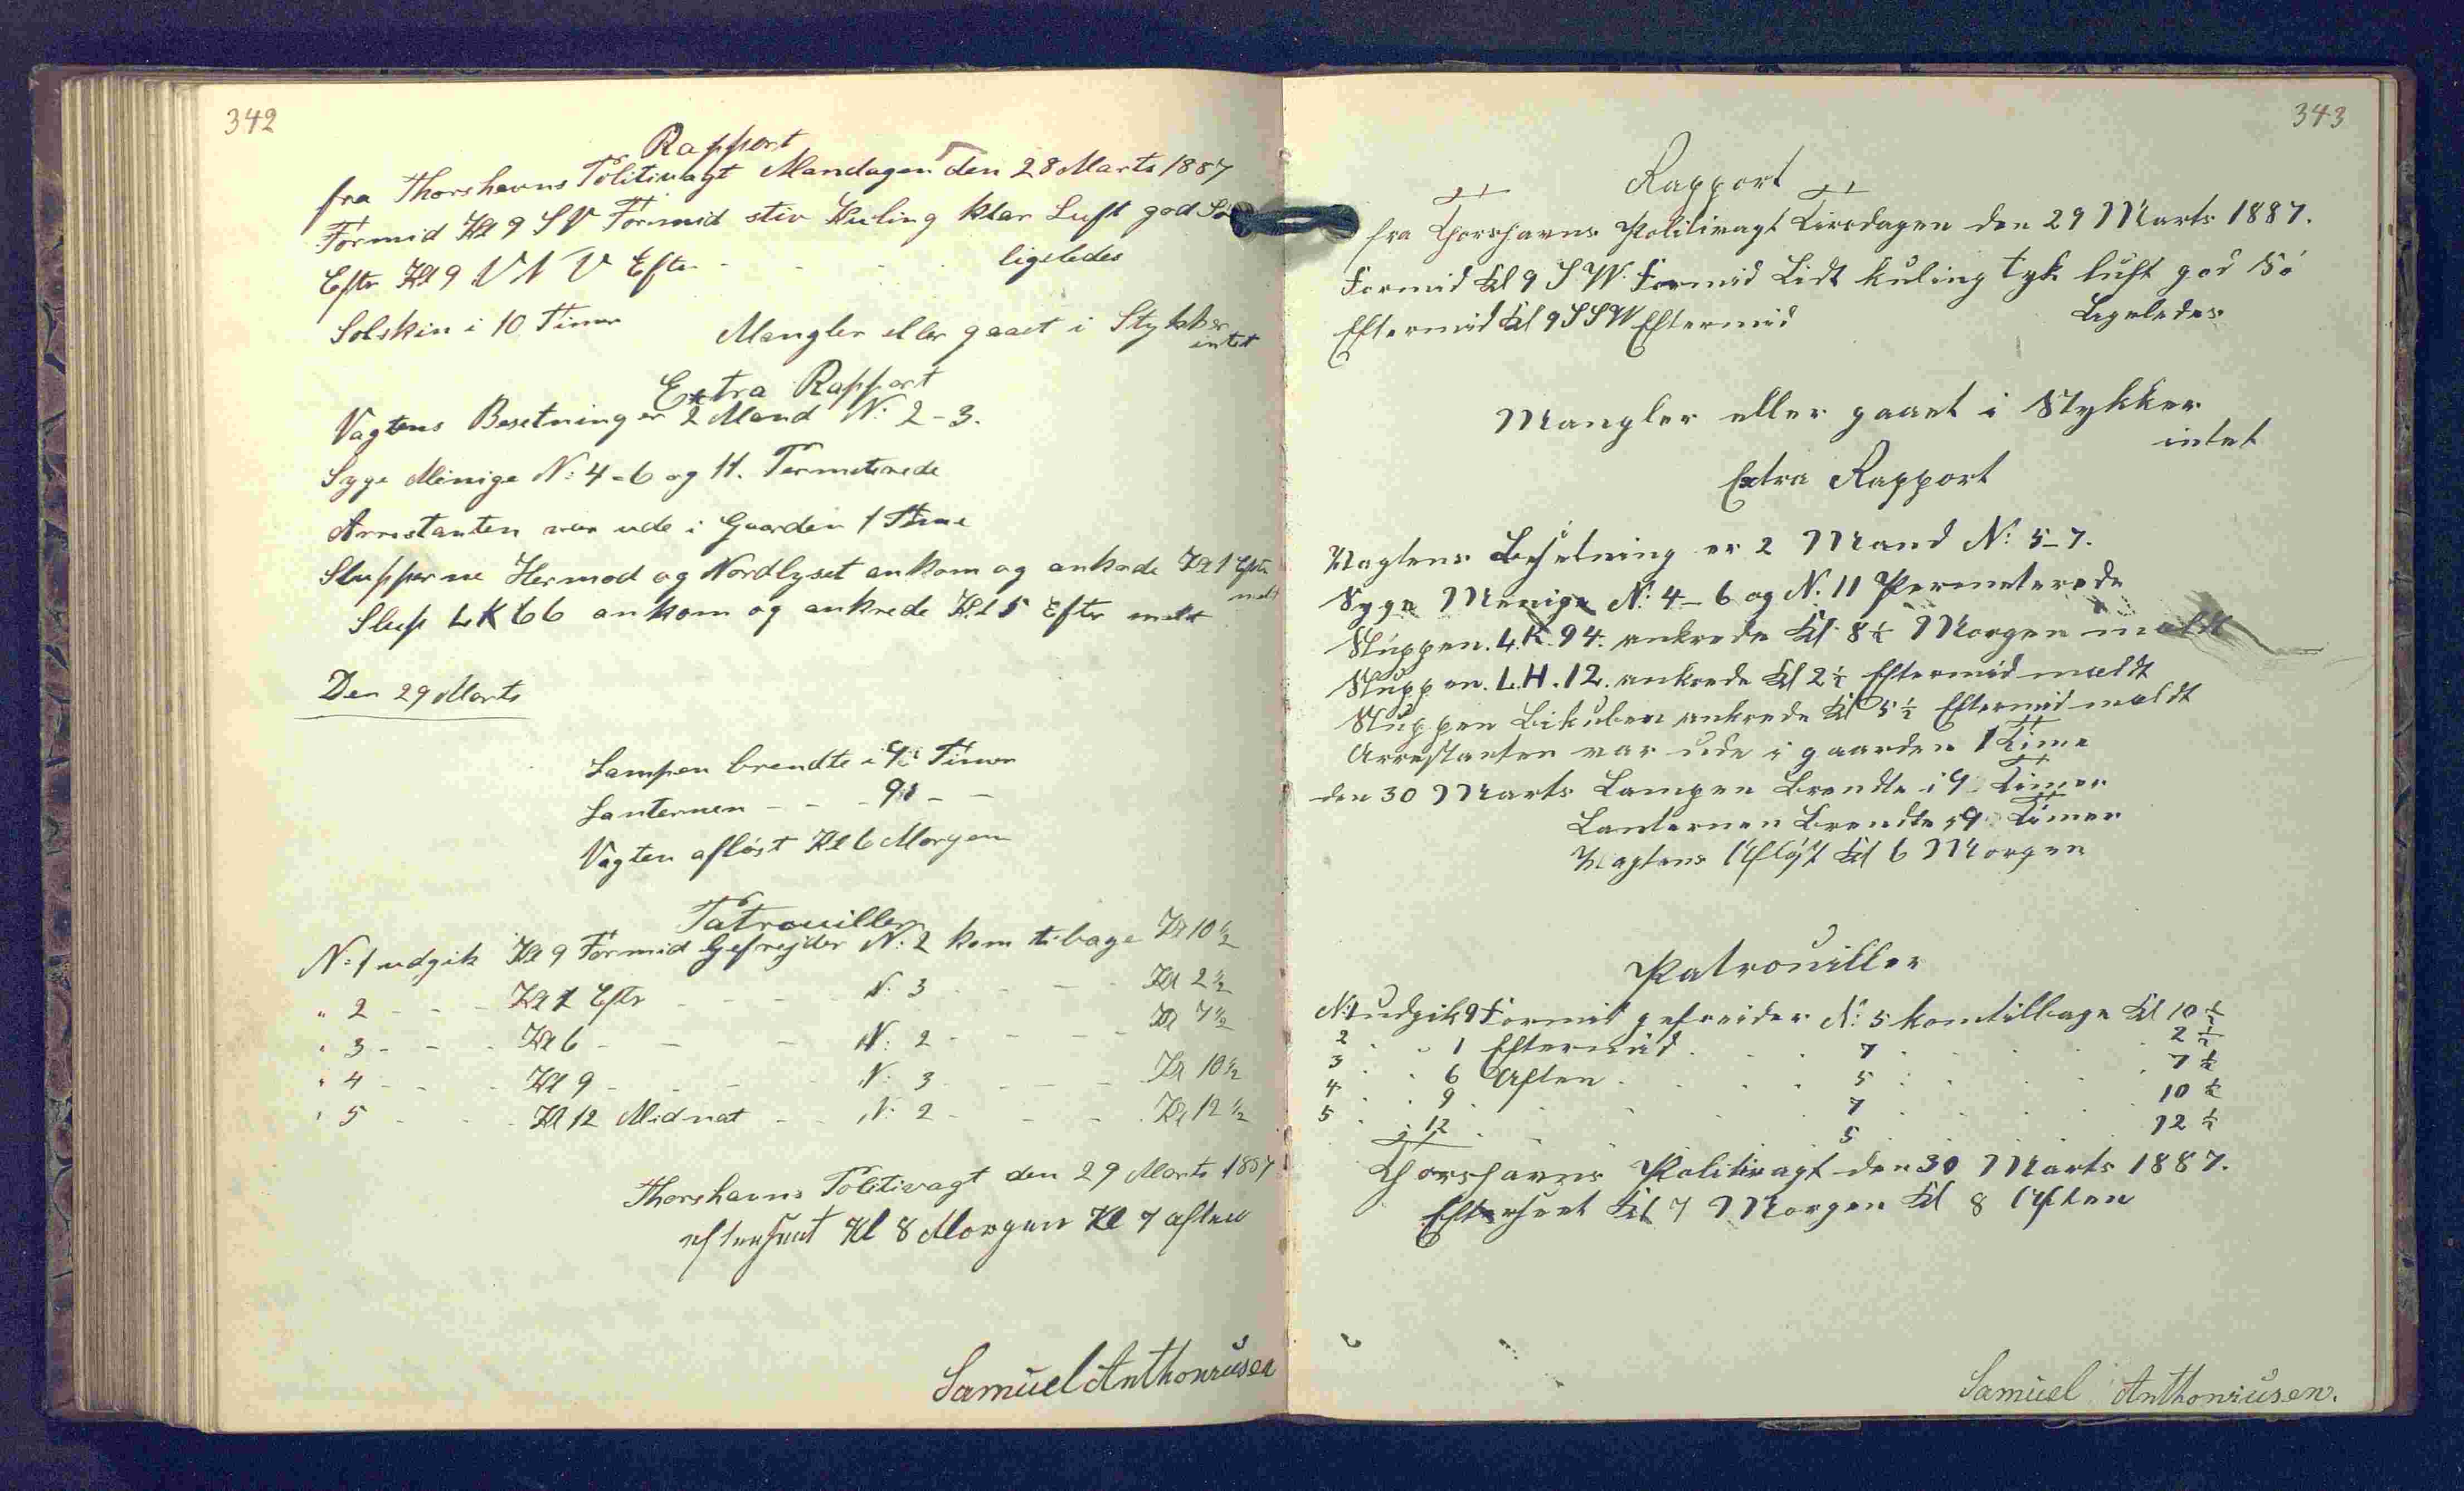 342
Rapport
fra Thorshavns Politivagt Mandagen den 28 Marts 1887
Formid Kl 9 SV Formid stiv Kuling klar Luft god Sö
Eftr Kl 9 VNV Eftr - - - - ligeledes
Solskin i 10 Timer
Mangler eller gaaet i Stykker
intet
Extra Rapport
Vagtens Besetning er 2 Mand N: 2-3.
Syge Menige N: 4-6 og 11. Permeterede
Arrestanten var ude i Gaarden 1 Time
Slupperne Hermod og Nordlyset ankom og ankrede Kl 1 Eftr
meldt
Slup LK 66 ankom og ankrede Kl 5 Eftr meldt
Den 29 Marts
Lampen brendte i 9 Timer
Lanternen - - - 9 - -
Vagten aflöst Kl 6 Morgen
Patrouiller
N: 1 udgik Kl 9 Formid Gefrejder N: 2 kom tibage Kl 10½
" 2 - - - Kl 1 Eftr - - - - N: 3 - - - - Kl 2½
" 3 - - - Kl 6 - - - N: 2 - - - - Kl 7½
" 4 - - - Kl 9 - - - N: 3 - - - - Kl 10½
" 5 - - - Kl 12 Midnat - - N: 2 - - - - Kl 12½
Thorshavns Politivagt den 29 Marts 1887
efterseet Kl 8 Morgen Kl 7 aften
Samuel Anthoniusen
343
Rapport
fra Thorshavns Politivagt Tirsdagen den 29 Marts 1887.
Formid Kl 9 S W. Formid Lidt kuling tyk luft god Sö
Eftermid Kl 9 SSW Eftermid Ligeledes
Mangler eller gaaet i Stykker
intet
Extra Rapport
Vagtens Besetning er 2 Mand N: 5-7.
Syge Menige N: 4-6 og N. 11 Permeterede
Sluppen. L.K. 94. ankrede Kl 8½ Morgen meldt
Sluppen. L.H. 12. ankrede Kl 2½ Eftermid meldt
Sluppen Bikuben ankrede Kl 5½ Eftermid meldt
Arrestanten var ude i gaarden 1 Time
den 30 Marts Lampen Brendte i 9 Timer
Lanternen Brendte i 9 Timer
Vagtens Aflöst Kl 6 Morgen
Patrouiller
N: 1 udgik 9 Formid gefreider N: 5 kom tilbage Kl 10½
2 . . 1 Eftermid . . . 7 . . . . 2½
3 . . 6 Aften . . . . 5 . . . . 7½
4 . . 9 . . . . . 7 . . . . 10½
5 . . 12 . . . . . 5 . . . . 12½
Thorshavns Politivagt den 30 Marts 1887.
Efterseet Kl 7 Morgen Kl 8 Aften
Samuel Anthoniusen.